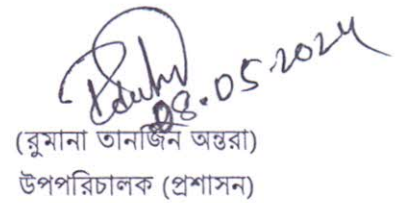 08.05.2024
(রুমানা তানজিন অন্তরা)
উপপরিচালক (প্রশাসন)